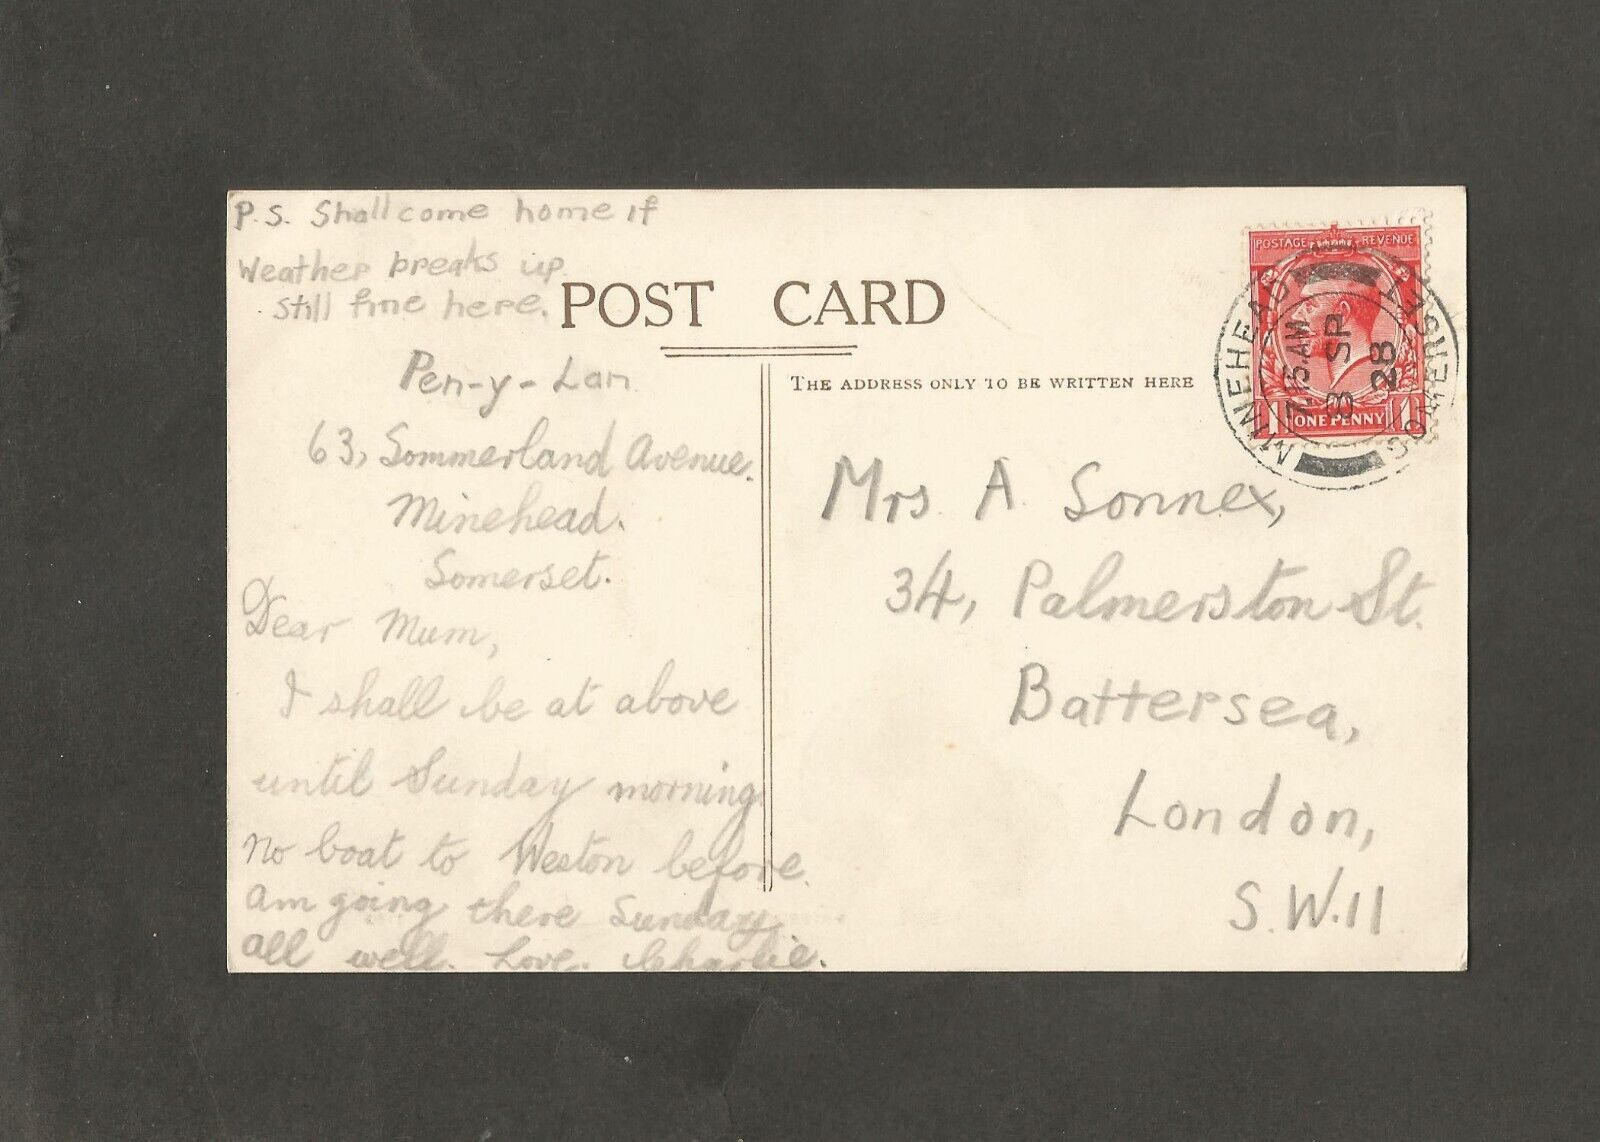 P.S. Shall come home if
Weather breaks up.
Still fine here.
POST CARD
Pen-y-Lan
63, Sommerland Avenue.
Minehead.
Somerset.
Dear Mum,
I shall be at above
until Sunday morning.
No boat to Weston before.
Am going there Sunday
All well. Love. Charlie.
THE ADDRESS ONLY TO BE WRITTEN HERE
Mrs A Sonnex,
34, Palmerston St.
Battersea,
London,
S.W.11
POSTAGE REVENUE
1 ONE PENNY 1
MINEHEAD SOMERSET
7.15AM
8 SP
28